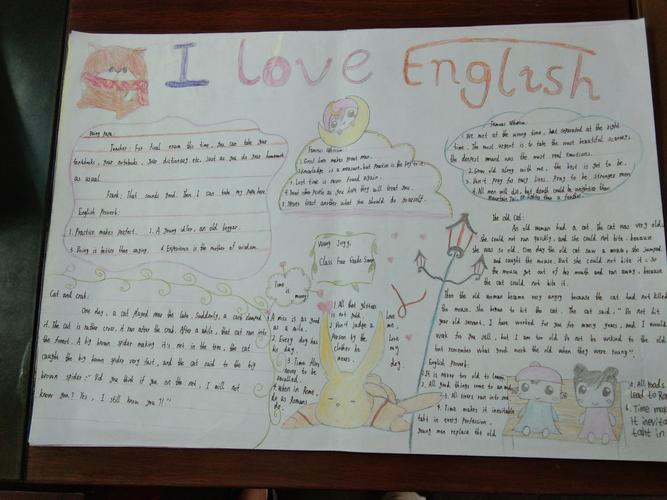 I love English
Using Papa:
Teacher: For final exam this time, you can take your
textbooks, your notebooks, your dictionary etc. Just as you do your homework
as usual.
Frank: That sounds good. Then I can take my papa here.
English Proverb:
1. Practice makes perfect. 2. A young idler, an old beggar.
3. Doing is better than saying. 4. Experience is the mother of wisdom.
Famous Aphorism
1. Great hopes makes great man.
2. Knowledge is a measure, but practice is the key to it.
3. Lost time is never found again.
4. Treat other people as you hope they will treat you.
5. Never trust another what you should do yourself.
Famous Aphorism:
1. We met at the wrong time, but separated at the right
time. The most urgent is to take the most beautiful scenery;
the deepest wound was the most real emotions.
2. Grow old along with me, the best is yet to be.
3. Don't pray for easy lives. Pray to be stronger men.
4. All men will die, but death could be weightier than
Mountain Tai, or lighter than a feather.
The old Cat:
An old woman had a cat. The cat was very old;
she could not run quickly, and she could not bite, because
she was so old. One day the old cat saw a mouse; she jumped
and caught the mouse. But she could not bite it; so
the mouse got out of her mouth and run away, because
the cat could not bite it.
Then the old woman became very angry because the cat had not killed
the mouse. She began to hit the cat. The cat said, "Do not hit
your old servant. I have worked for you for many years, and I would
work for you still, but I am too old. Do not be unkind to the old,
but remember what good work the old when they were young".
Class Four Grade
Time
is
money
Cat and crab:
One day, a cat played near the lake. Suddenly, a crab clamped
it. The cat is rather cross, it run after the crab. After a while, that cat run into
the forest. A big brown spider making it's net in the tree, the cat
caught the big brown spider very fast, and the cat said to the big
brown spider: "Did you think if you on the net, I will not
know you? Yes, I still know you?!"
A miss is as good
as a mile.
2. Every dog has
his day.
3. Time flies
never to be
recalled.
4. When in Rome,
do as Romans
do.
1. All that glisters
is not gold.
2. Don't judge a
person by the
clothes he
wears.
Love
me,
Love
my
dog.
English Proverb:
1. It is never too old to learn.
2. All good things come to an end.
3. All rivers run into sea.
4. Time makes it inevitable
that in every profession,
young men replace the old
All roads
lead to Ro